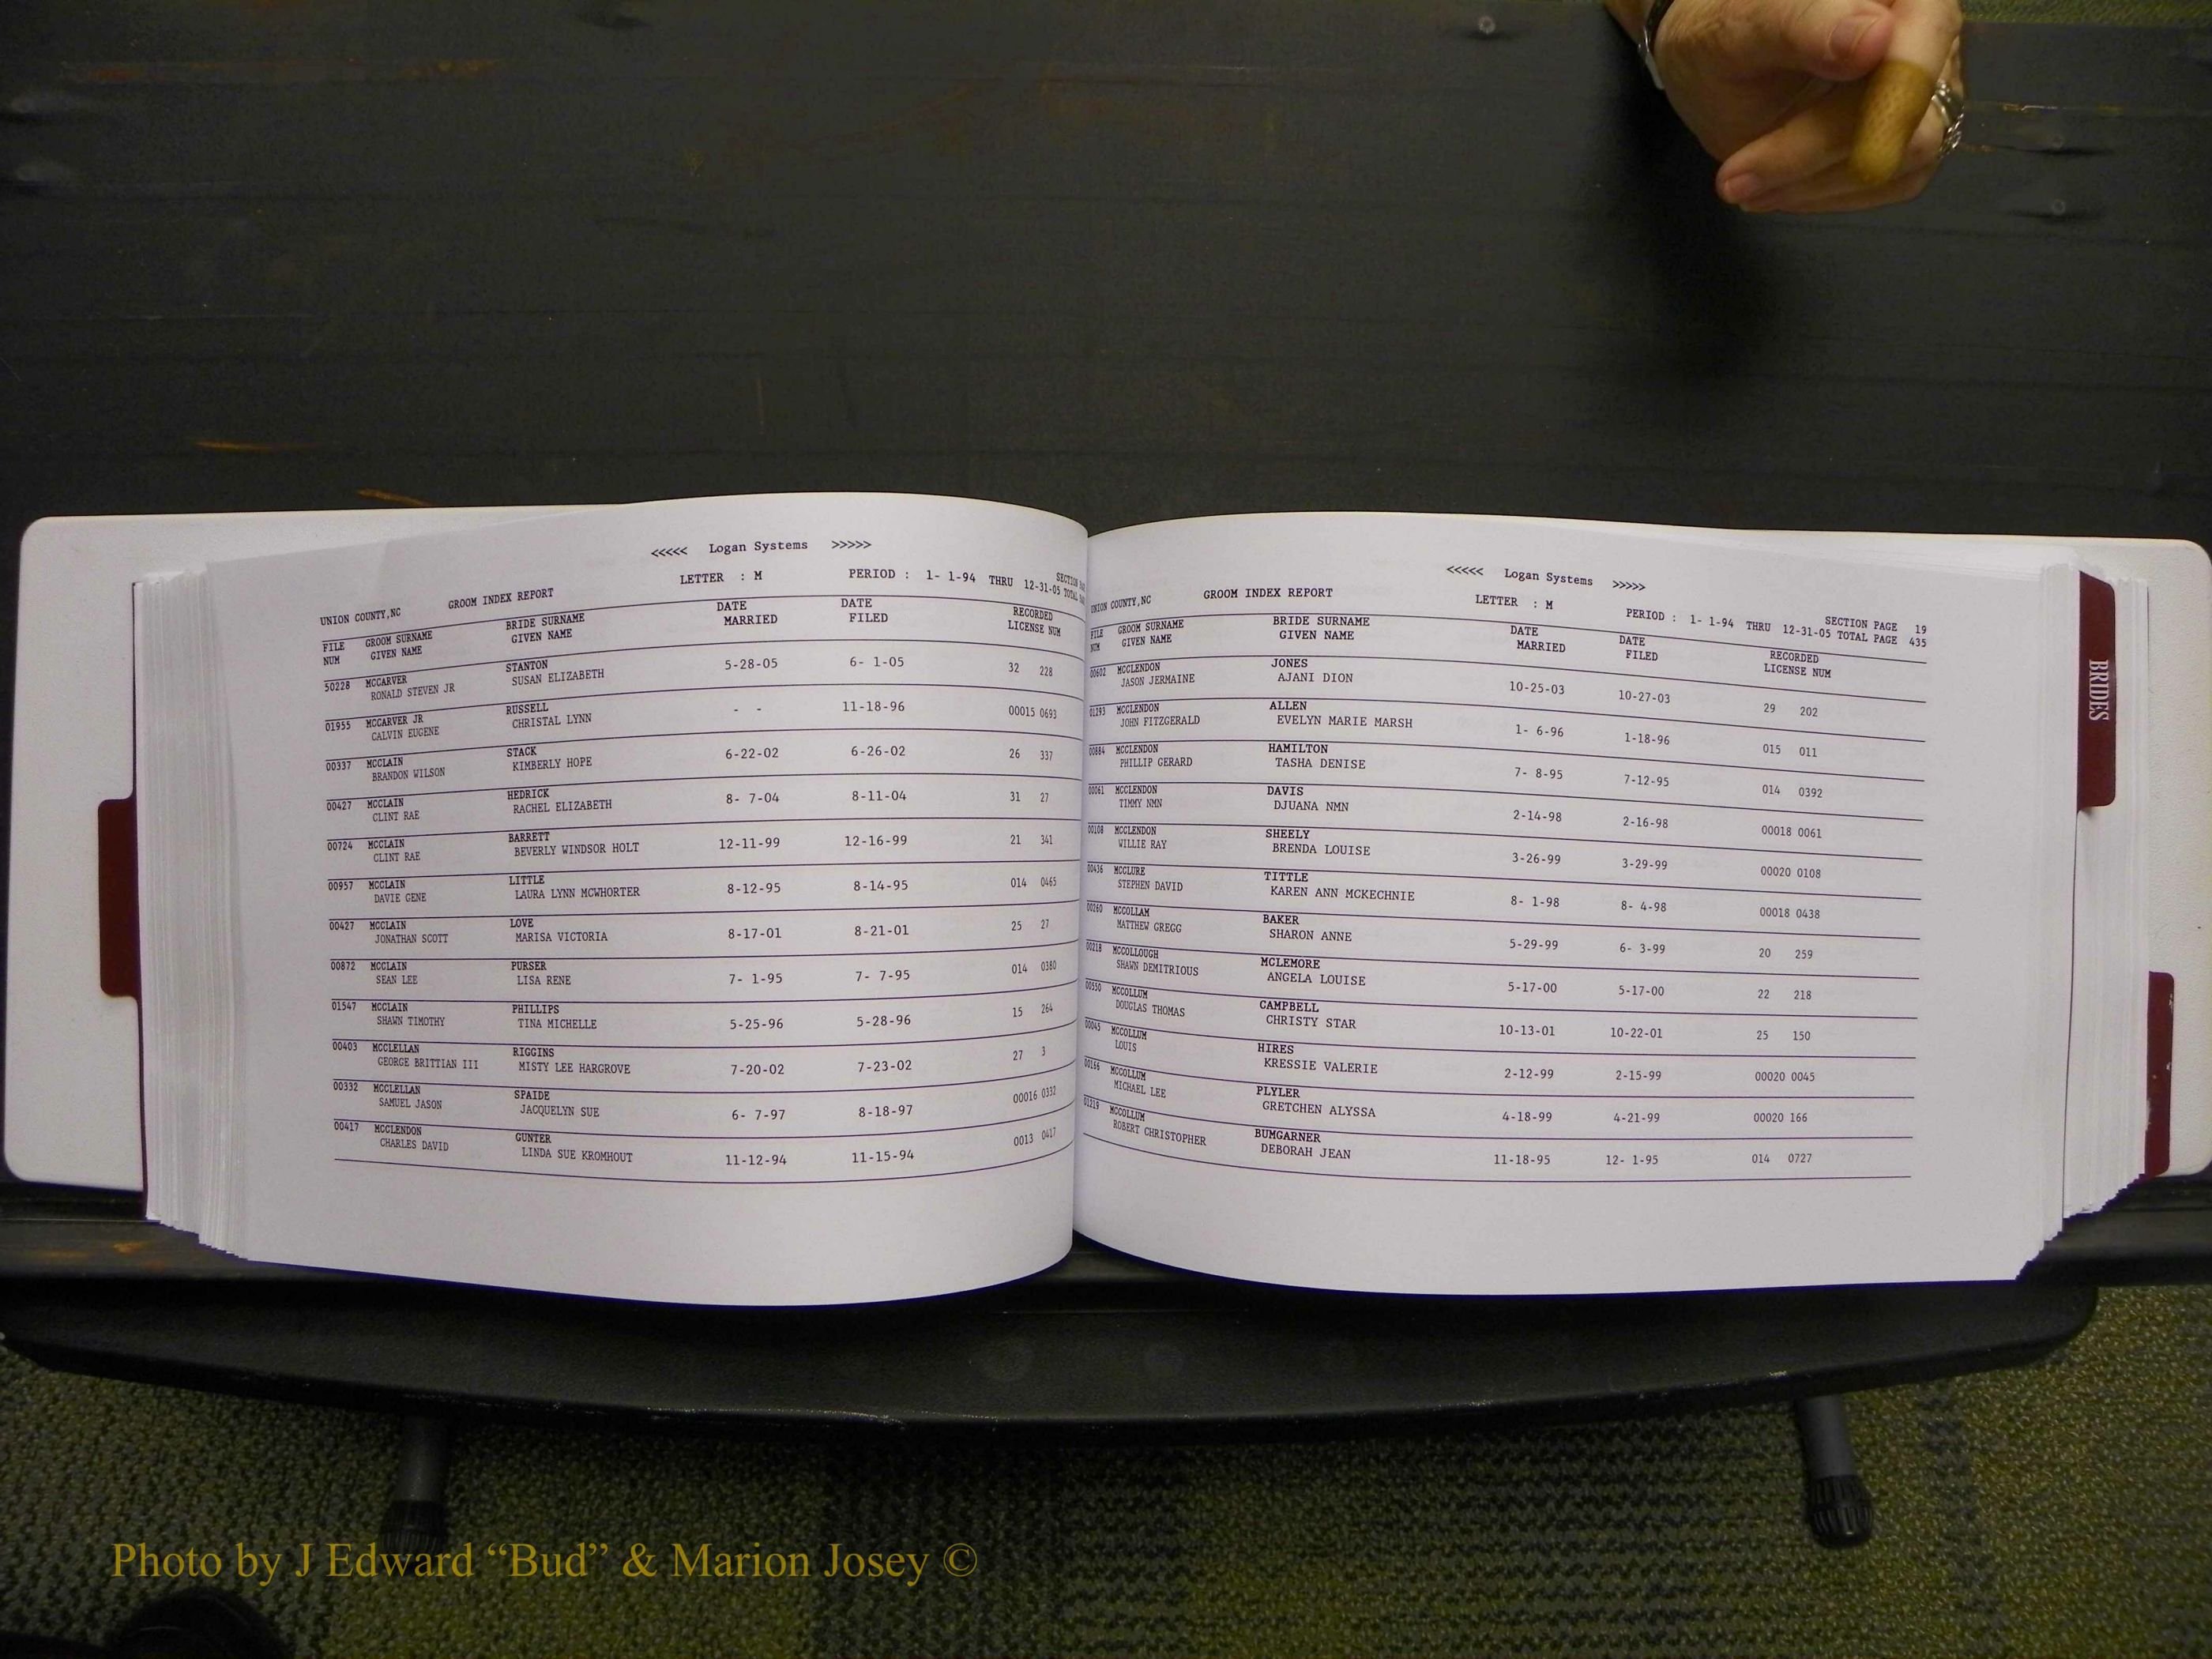 <<<<< Logan Systems >>>>>
UNION COUNTY,NC GROOM INDEX REPORT LETTER : M PERIOD : 1- 1-94 THRU 12-31-05 TOTAL
SECTION
FILE GROOM SURNAME BRIDE SURNAME DATE DATE RECORDED
NUM GIVEN NAME GIVEN NAME MARRIED FILED LICENSE NUM
50228 MCCARVER STANTON 5-28-05 6- 1-05 32 228
RONALD STEVEN JR SUSAN ELIZABETH
01955 MCCARVER JR RUSSELL - - 11-18-96 00015 0693
CALVIN EUGENE CHRISTAL LYNN
00337 MCCLAIN STACK 6-22-02 6-26-02 26 337
BRANDON WILSON KIMBERLY HOPE
00427 MCCLAIN HEDRICK 8- 7-04 8-11-04 31 27
CLINT RAE RACHEL ELIZABETH
00724 MCCLAIN BARRETT 12-11-99 12-16-99 21 341
CLINT RAE BEVERLY WINDSOR HOLT
00957 MCCLAIN LITTLE 8-12-95 8-14-95 014 0465
DAVIE GENE LAURA LYNN MCWHORTER
00427 MCCLAIN LOVE 8-17-01 8-21-01 25 27
JONATHAN SCOTT MARISA VICTORIA
00872 MCCLAIN PURSER 7- 1-95 7- 7-95 014 0380
SEAN LEE LISA RENE
01547 MCCLAIN PHILLIPS 5-25-96 5-28-96 15 264
SHAWN TIMOTHY TINA MICHELLE
00403 MCCLELLAN RIGGINS 7-20-02 7-23-02 27 3
GEORGE BRITTIAN III MISTY LEE HARGROVE
00332 MCCLELLAN SPAIDE 6- 7-97 8-18-97 00016 0332
SAMUEL JASON JACQUELYN SUE
00417 MCCLENDON GUNTER 11-12-94 11-15-94 0013 0417
CHARLES DAVID LINDA SUE KROMHOUT
<<<<< Logan Systems >>>>>
UNION COUNTY,NC GROOM INDEX REPORT LETTER : M PERIOD : 1- 1-94 THRU 12-31-05 TOTAL PAGE 435
SECTION PAGE 19
FILE GROOM SURNAME BRIDE SURNAME DATE DATE RECORDED
NUM GIVEN NAME GIVEN NAME MARRIED FILED LICENSE NUM
00602 MCCLENDON JONES 10-25-03 10-27-03 29 202
JASON JERMAINE AJANI DION
01293 MCCLENDON ALLEN 1- 6-96 1-18-96 015 011
JOHN FITZGERALD EVELYN MARIE MARSH
00884 MCCLENDON HAMILTON 7- 8-95 7-12-95 014 0392
PHILLIP GERARD TASHA DENISE
00061 MCCLENDON DAVIS 2-14-98 2-16-98 00018 0061
TIMMY NMN DJUANA NMN
00108 MCCLENDON SHEELY 3-26-99 3-29-99 00020 0108
WILLIE RAY BRENDA LOUISE
00436 MCCLURE TITTLE 8- 1-98 8- 4-98 00018 0438
STEPHEN DAVID KAREN ANN MCKECHNIE
00260 MCCOLLAM BAKER 5-29-99 6- 3-99 20 259
MATTHEW GREGG SHARON ANNE
00218 MCCOLLOUGH MCLEMORE 5-17-00 5-17-00 22 218
SHAWN DEMITRIOUS ANGELA LOUISE
00550 MCCOLLUM CAMPBELL 10-13-01 10-22-01 25 150
DOUGLAS THOMAS CHRISTY STAR
00045 MCCOLLUM HIRES 2-12-99 2-15-99 00020 0045
LOUIS KRESSIE VALERIE
00166 MCCOLLUM PLYLER 4-18-99 4-21-99 00020 166
MICHAEL LEE GRETCHEN ALYSSA
01219 MCCOLLUM BUMGARNER 11-18-95 12- 1-95 014 0727
ROBERT CHRISTOPHER DEBORAH JEAN
BRIDES
Photo by J Edward “Bud” & Marion Josey ©